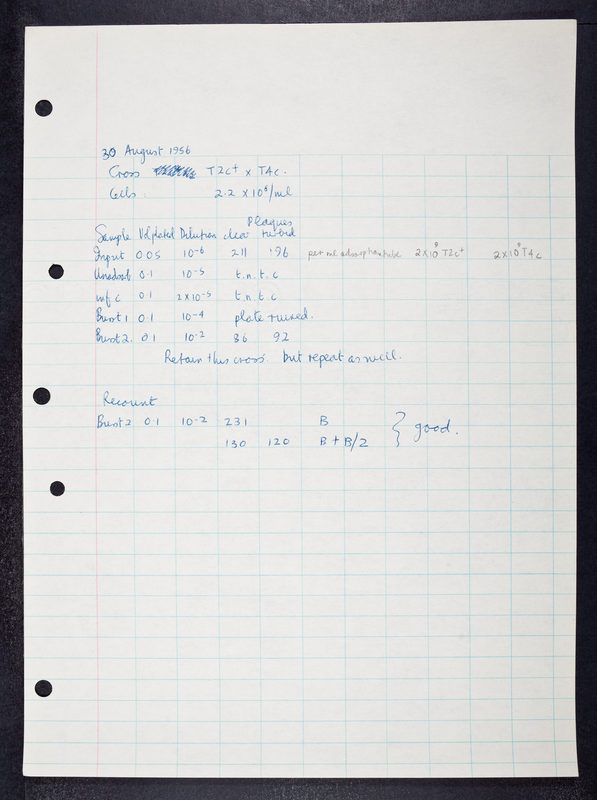 30 August 1956
Cross T2c+ x T4c.
Cells. 2.2 x 10⁸/ml
Plaques
Sample Vol plated Dilution clear turbid
Input 0.05 10-6 211 196 per ml adsorption tube 2x10⁹ T2c+ 2x10⁹ T4c
Unadsorb 0.1 10-5 t.n.t.c
inf c 0.1 2x10-5 t.n.t.c
Burst 1 0.1 10-4 plate ruined.
Burst 2. 0.1 10-2 86 92
Retain this cross. but repeat as well.
Recount
Burst 2 0.1 10-2 231 B
130 120 B + B/2 } good.